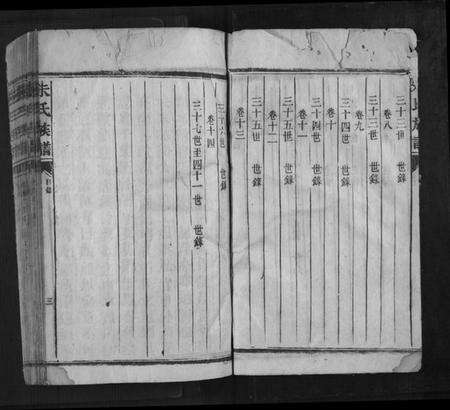 三十二世 世錄
卷八
三十三世 世錄
卷九
三十四世 世錄
卷十
三十四世 世錄
卷十一
三十五世 世錄
卷十二
三十五世 世錄
卷十三
世錄
卷十四
三十七世至四十一世 世錄
朱氏族譜
目錄
三